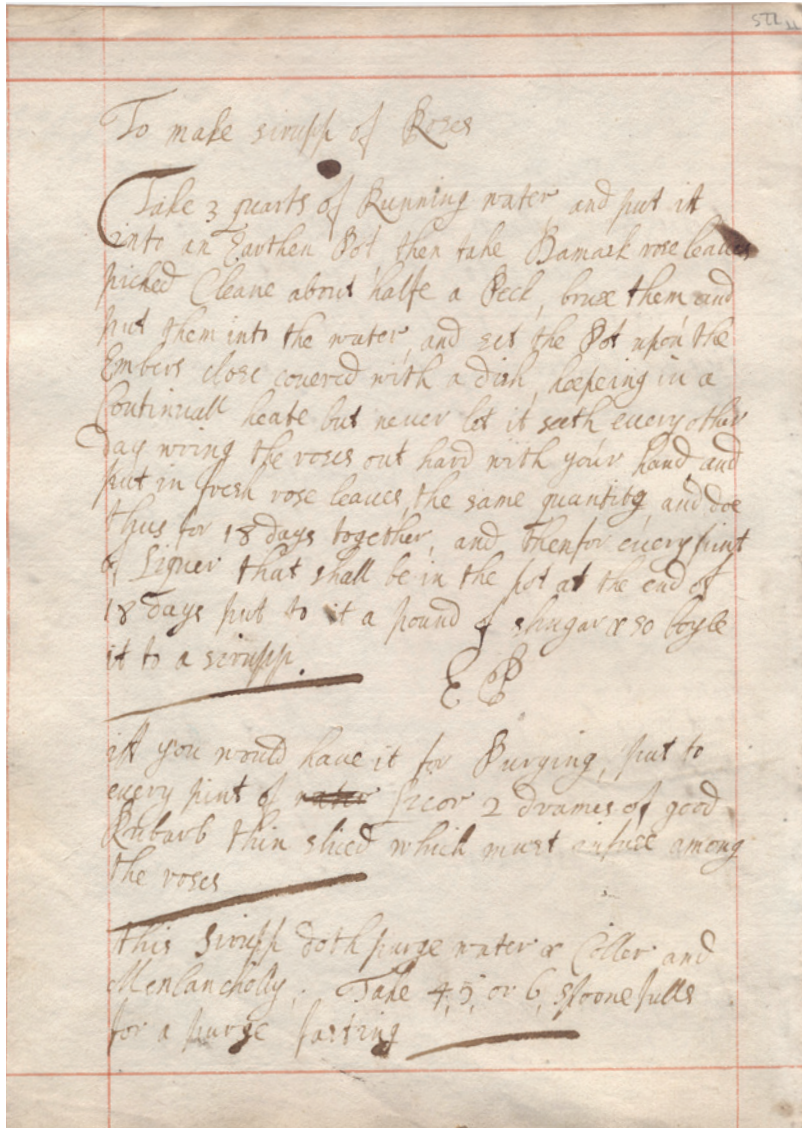 To make sirupp of Roses
Take 3 quarts of Running water, and put itt
into an Earthen Pot, then take Damask rose leaues
picked Cleane about halfe a Peck, bruse them and
put them into the water, and set the Pot upon the
Embers close covered with a dish, keepeing in a
Continuall heate but never let it seeth every other
day wring the roses out hard with your hand, and
put in fresh rose leaues, the same quantity, and doe
thus for 18 days together, and then for every pint
of Liquer that shall be in the pot at the end of
18 days put to it a pound of shugar & so boyle
it to a sirupp.
E P
iff you would have it for Purging, put to
every pint of water Licor 2 drames of good
Rhibarb thin sliced which must infuse among
the roses
this sirupp doth purge water & Coller and
Menlancholly. Take 4, 5, or 6, spoonefulls
for a purge fasting